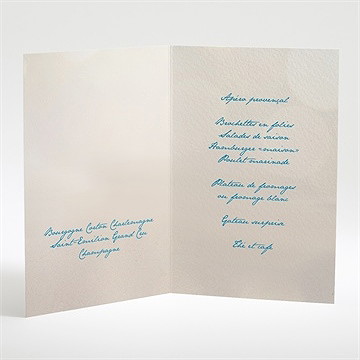 Bourgogne Corton Charlemagne
Saint-Emilion Grand Cru
Champagne
Apéro provençal
Brochettes en folies
Salades de saison
Hamburger "maison"
Poulet marinade
Plateau de fromages
ou fromage blanc
Gateau surprise
Thé et cafe